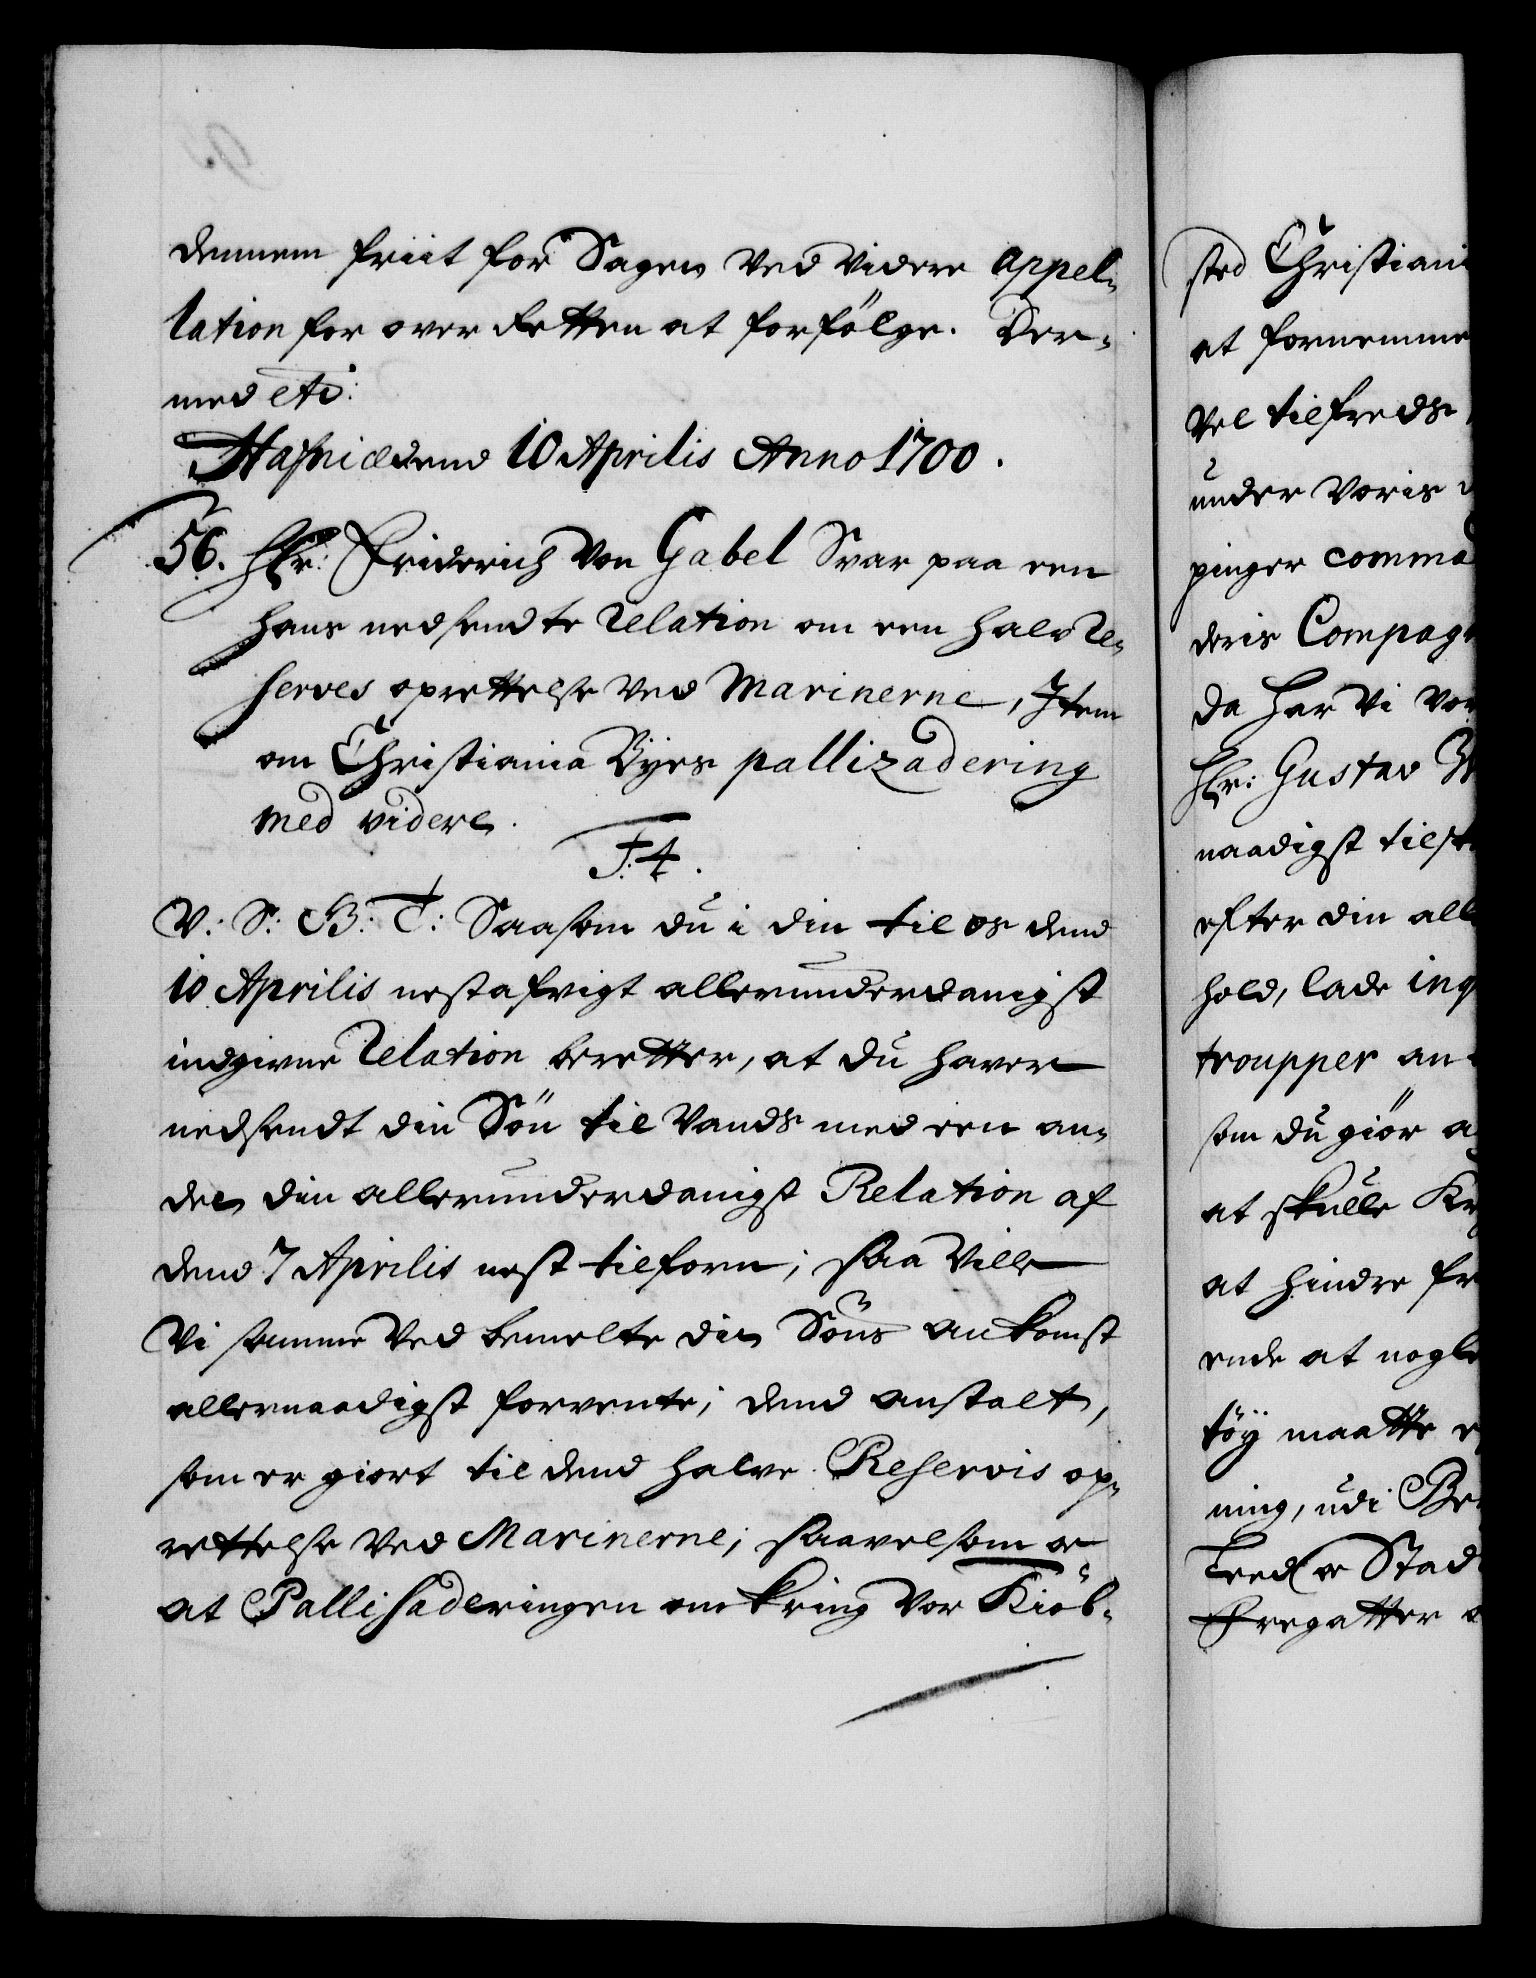 dennem friit for Sagen ved videre Appel-
lation for over Retten at forfölge. Der-
med etc:
Hafniæ dend 10 Aprilis Anno 1700.
56. Hr: Friderich von Gabel Svar paa een
hans nedsendte Relation om een halv Re-
serves oprettelse ved Marinerne, Item
om Christiania Byes pallizadering
med videre.
F. 4.
V: S: G: T: Saasom du i din til os dend
10 Aprilis nestafvigt allerunderdanigst
indgivne Relation beretter, at du haver
nedsendt din Sön til Vands med een an-
den din allerunderdanigst Relation af
dend 7 Aprilis nest tilforn; saa ville
Vi samme ved bemelte din Söns ankomst
allernaadigst forvente; dend anstalt,
som er giort til dend halve Reservis op-
rettelse ved Marinerne; saavelsom og
at Pallisaderingen omkring vor Kiöb-
sted Christiani
at fornemme
vel tilfreds
under voris
pinger comma
deris Compag
da har Vi vor
Hr: Gustav W
naadigst tilst
efter din all
hold, lade inq
troupper an
som du giör a
at skulle Kr
at hindre fr
ende at nogle
töy maatte
ning, udi Be
Leed og Stad
Fregatter